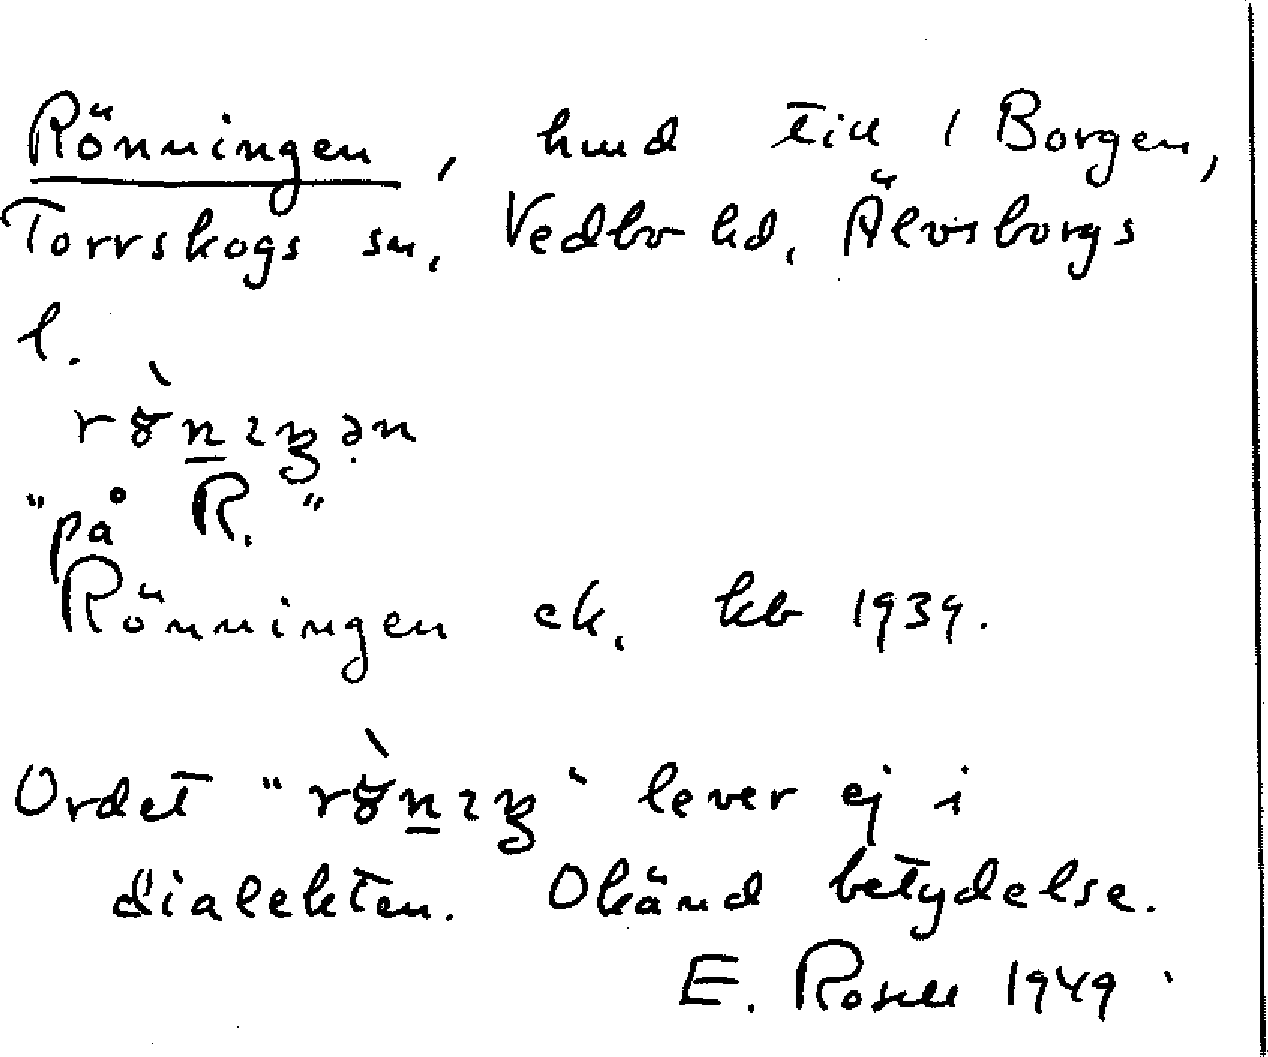 Rönningen, hmd till 1 Borgen,
Torrskogs sn, Vedbo hd, Älvsborgs
l.
"på R."
Rönningen ek. kb 1939.
Ordet " " lever ej i
dialekten. Okänd betydelse.
E. Rosell 1949